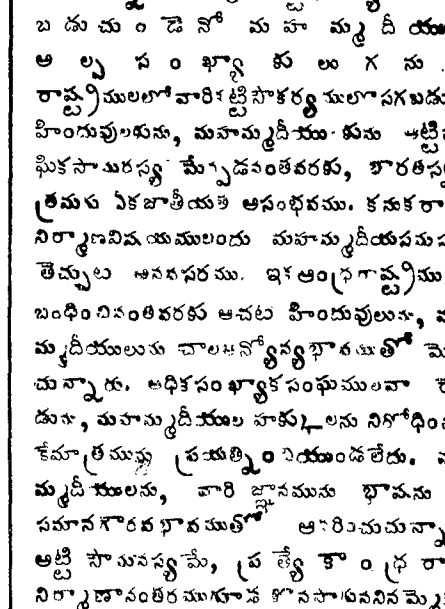 బ డు చు ం డె నో మ హ మ్మ దీ యు
అ ల్ప సం ఖ్యా కు లు గ ను
రాష్ట్రములలో వారికట్టిసౌకర్యములొసగబడు
హిందువులకును, మహమ్మదీయులకును అట్టి
ఘికసామరస్య మేర్పడనంతవరకు, భారతీ
త్రమున ఏకజాతీయత అసంభవము. కనుక రా
నిర్మాణవిషయములందు మహమ్మదీయసమస
తెచ్చుట అనవసరము. ఇక ఆంధ్రరాష్ట్రము
బంధించినంతవరకు అచట హిందువులును, మ
మ్మదీయులును చాలఅన్యోన్యభావముతో మె
చున్నారు. అధికసంఖ్యాకసంఘములవా
డును, మహమ్మదీయుల హక్కులను నిరోధిం
కేమాత్రమును ప్రయత్నించియుండలేదు.
మ్మదీయులను, వారి జ్ఞానమును భావను
సమానగౌరవభావముతో ఆదరించుచున్నా
అట్టి సామరస్యమే, ప్ర త్యే కాం ధ్ర రా
నిర్మాణానంతరముగూడ కొనసాగుననినమ్మ